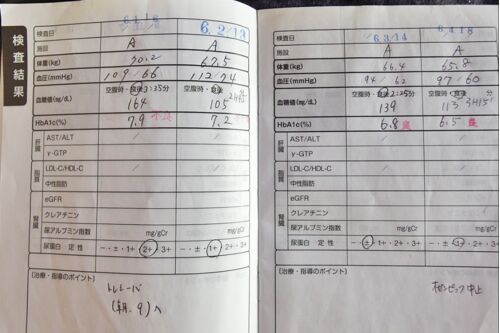 検査結果
検査日 6.2/13
施設 A A
体重(kg) 70.2 67.5
血圧(mmHg) 109/66 112/74
血糖値(mg/dL) 空腹時・食後 分 空腹時・食後
164 105
HbA1c(%) 7.9 7.2
肝臓 AST/ALT
γ-GTP
脂質 LDL-C/HDL-C
中性脂肪
腎臓 eGFR
クレアチニン
尿アルブミン指数 mg/gCr mg/gCr
尿蛋白 定性 -・±・1+・2+・3+ -・±・1+・2+・3+
〔治療・指導のポイント〕
(朝、9)へ
検査日 6 3/14 6 4/18
施設 A A
体重(kg) 66.4 65.8
血圧(mmHg) 94/62 97/60
血糖値(mg/dL) 空腹時・食後 分 空腹時・食後
139 113
HbA1c(%) 6.8 良 6.5 良
肝臓 AST/ALT
γ-GTP
脂質 LDL-C/HDL-C
中性脂肪
腎臓 eGFR
クレアチニン
尿アルブミン指数 mg/gCr mg/gCr
尿蛋白 定性 -・±・1+・2+・3+ -・±・1+・2+・3+
〔治療・指導のポイント〕
オゼンピック中止